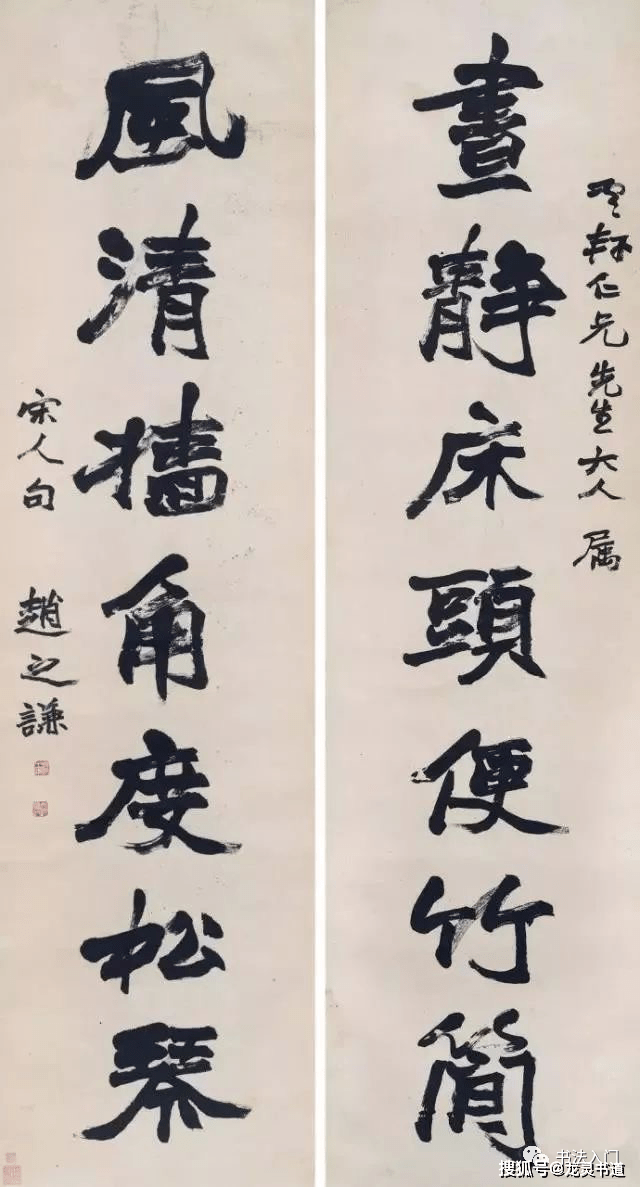 仁兄先生大人 属
晝靜床頭便竹簡
風清牆角度松琴
宋人句 趙之謙
书法入门
搜狐号@龙灵书道